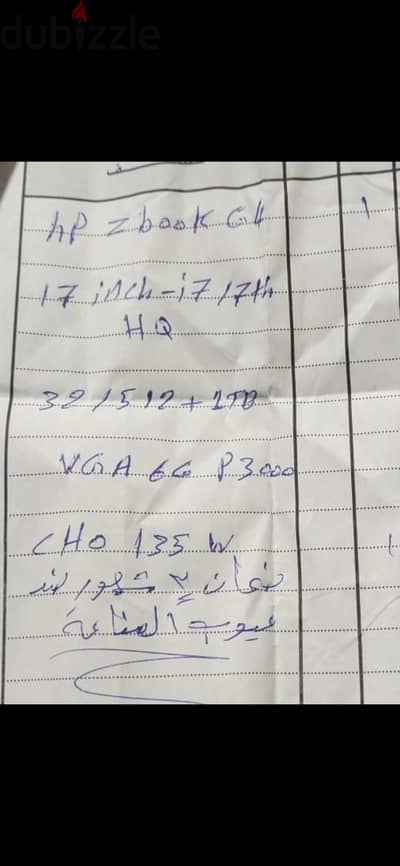 dubizzle
HP Zbook G4 1
17 inch - i7 / 7th
HQ
32 / 512 + 1TB
VGA 6G P3000
CHO 135 W 1
ضمان ٣ شهور ضد
عيوب الصناعة